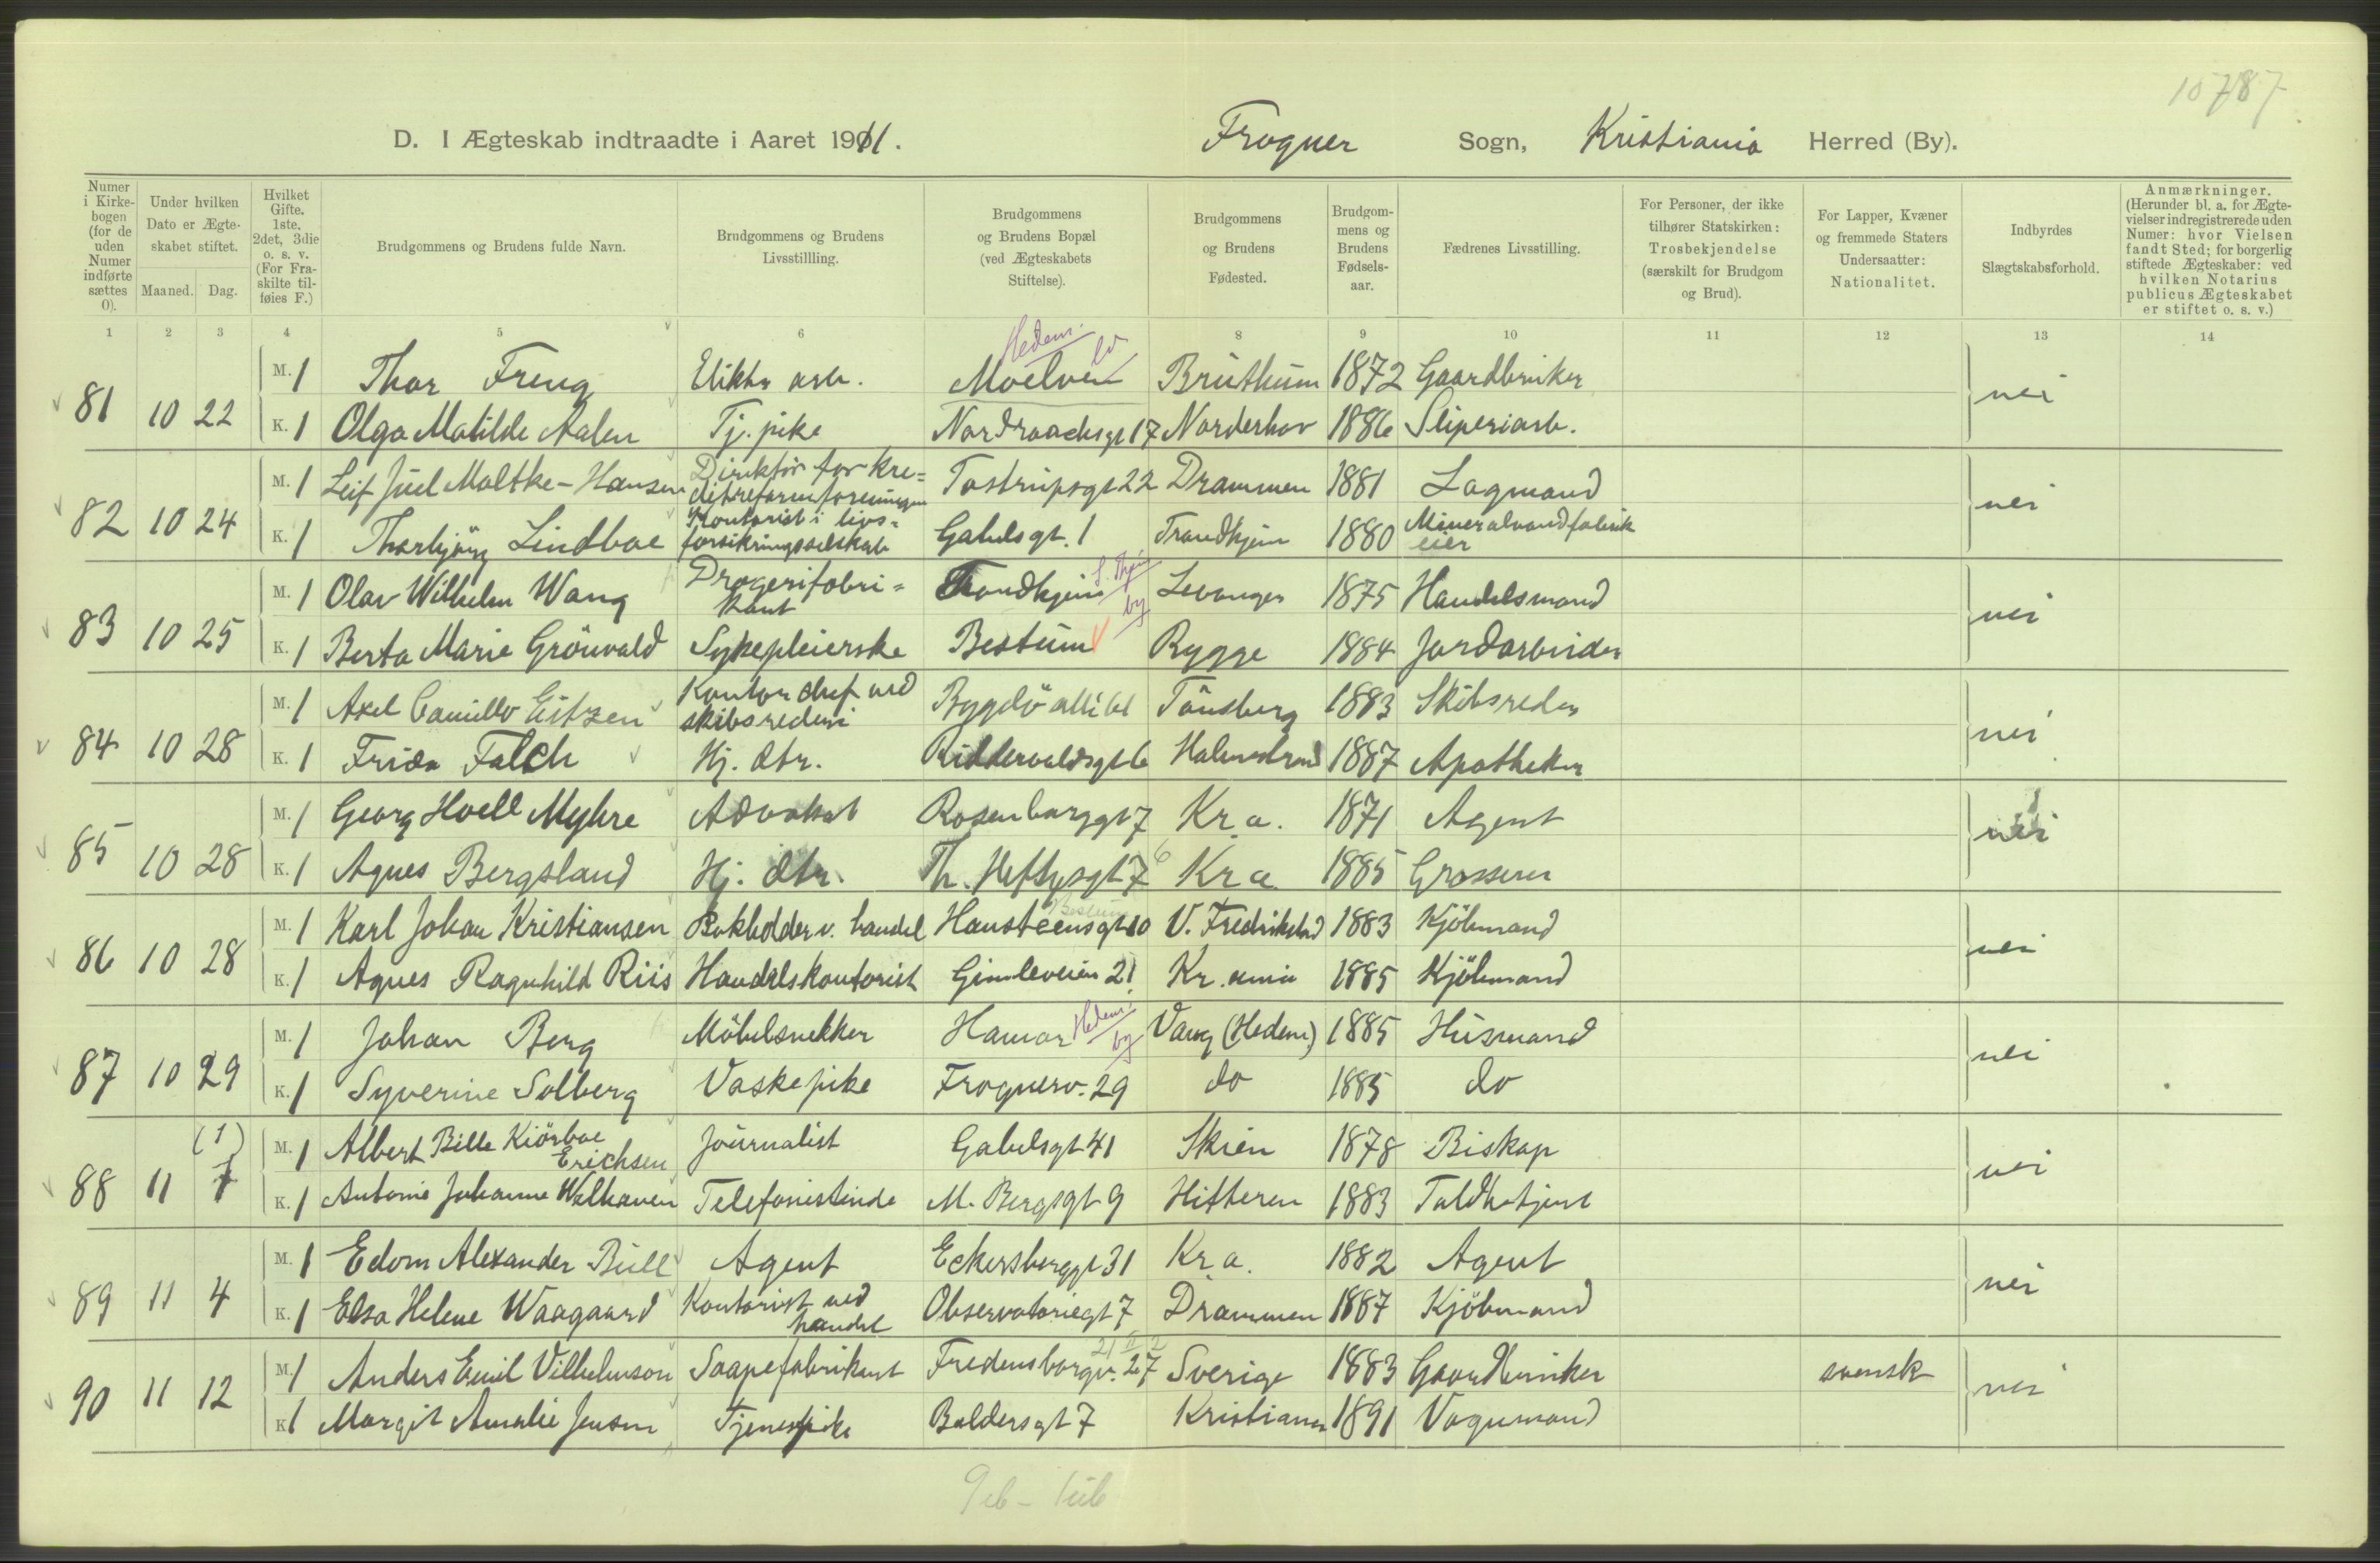 10787
D. I Ægteskab indtraadte i Aaret 1911. Frogner Sogn, Kristiania Herred (By).
Numer i Kirkebogen (for de uden Numer indførte sættes 0).
Under hvilken Dato er Ægteskabet stiftet.
Maaned. Dag.
Hvilket Gifte. 1ste, 2det, 3die o. s. v. (For Fraskilte tilføies F.)
Brudgommens og Brudens fulde Navn.
Brudgommens og Brudens Livsstillling.
Brudgommens og Brudens Bopæl (ved Ægteskabets Stiftelse).
Brudgommens og Brudens Fødested.
Brudgommens og Brudens Fødselsaar.
Fædrenes Livsstilling.
For Personer, der ikke tilhører Statskirken: Trosbekjendelse (særskilt for Brudgom og Brud).
For Lapper, Kvæner og fremmede Staters Undersaatter: Nationalitet.
Indbyrdes Slægtskabsforhold.
Anmærkninger. (Herunder bl. a. for Ægtevielser indregistrerede uden Numer: hvor Vielsen fandt Sted; for borgerlig stiftede Ægteskaber: ved hvilken Notarius publicus Ægteskabet er stiftet o. s. v.)
1 2 3 4 5 6 8 9 10 11 12 13 14
Hedem.
81 10 22 M. 1 Thor Freng Elektr. arb. Moelven Brøttum 1872 Gaardbruker nei
K. 1 Olga Matilde Aalen Tj. pike Nordraachsgt 17 Norderhov 1886 Sliperiarb.
82 10 24 M. 1 Leif Juel Moltke-Hansen Direktør for kreditreformforeningen Tostrupsgt 22 Drammen 1881 Lagmand nei
K. 1 Thorbjørg Lindboe Kontorist i livsforsikringsselskab Gabelsgt. 1 Trondhjem 1880 Mineralvandfabrik eier
83 10 25 M. 1 Olav Wilhelm Wang Drogerifabrikant Trondhjem S. Thjem by Levanger 1875 Handelsmand nei
K. 1 Berta Marie Grönvald Sykepleierske Bestum Rygge 1884 Jordarbeider
84 10 28 M. 1 Axel Camillo Eitzen Kontorchef ved skibsrederi Bygdö allé 61 Tönsberg 1883 Skibsreder nei
K. 1 Frida Falch Hj. dtr. Riddervoldsgt 6 Holmestrand 1887 Apotheker
85 10 28 M. 1 Georg Hoell Myhre Advokat Rosenborggt 7 Kr.a. 1871 Agent nei
K. 1 Agnes Bergsland Hj. dtr. Th. Heftysgt 7 6 Kr.a 1885 Grosserer
Bestum
86 10 28 M. 1 Karl Johan Kristiansen Bokholder v. handel Hansteensgt 10 V. Fredrikstad 1883 Kjöbmand nei
K. 1 Agnes Ragnhild Riis Handelskontorist Gimleveien 21 Kr.ania 1885 Kjöbmand
87 10 29 M. 1 Johan Berg Möbelsnekker Hamar Hedem. by Vang (Hedem.) 1885 Husmand nei
K. 1 Syverine Solberg Vaskepike Frognerv. 29 do 1885 do
(1)
88 11 1 M. 1 Albert Bille Kiörboe Erichsen Journalist Gabelsgt 41 Skien 1878 Biskop nei
K. 1 Antonie Johanne Welhaven Telefonistinde M. Bergsgt 9 Hitteren 1883 Toldbetjent
89 11 4 M. 1 Edom Alexander Bull Agent Eckersberggt 31 Kr.a. 1882 Agent nei
K. 1 Elsa Helene Waagaard Kontorist ved handel Observatoriegt 7 Drammen 1887 Kjöbmand
90 11 12 M. 1 Anders Emil Vilhelmson Saapefabrikant Fredensborgv. 27 Sverige 1883 Gaardbruker svensk nei
K. 1 Margit Amalie Jensen Tjenestpike Baldersgt 7 Kristiania 1891 Vognmand